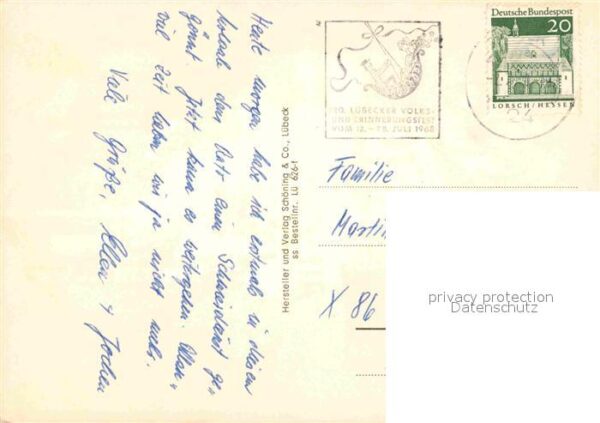 Heute morgen habe ich erstmals in diesem
Lokale den Vati einen
gönnt. Jetzt kann es weitergehen. Allzu
viel Zeit haben wir ja nicht mehr.
Viele Grüße, Ellen + Jochen
Hersteller und Verlag Schöning & Co., Lübeck
ss Bestellnr. Lü 626-1
LÜBECKER VOLKS-
UND ERINNERUNGSFEST
VOM 12. - JULI 1968
Deutsche Bundespost
20
LORSCH/HESSEN
24
Familie
Martin
X 86
privacy protection
Datenschutz